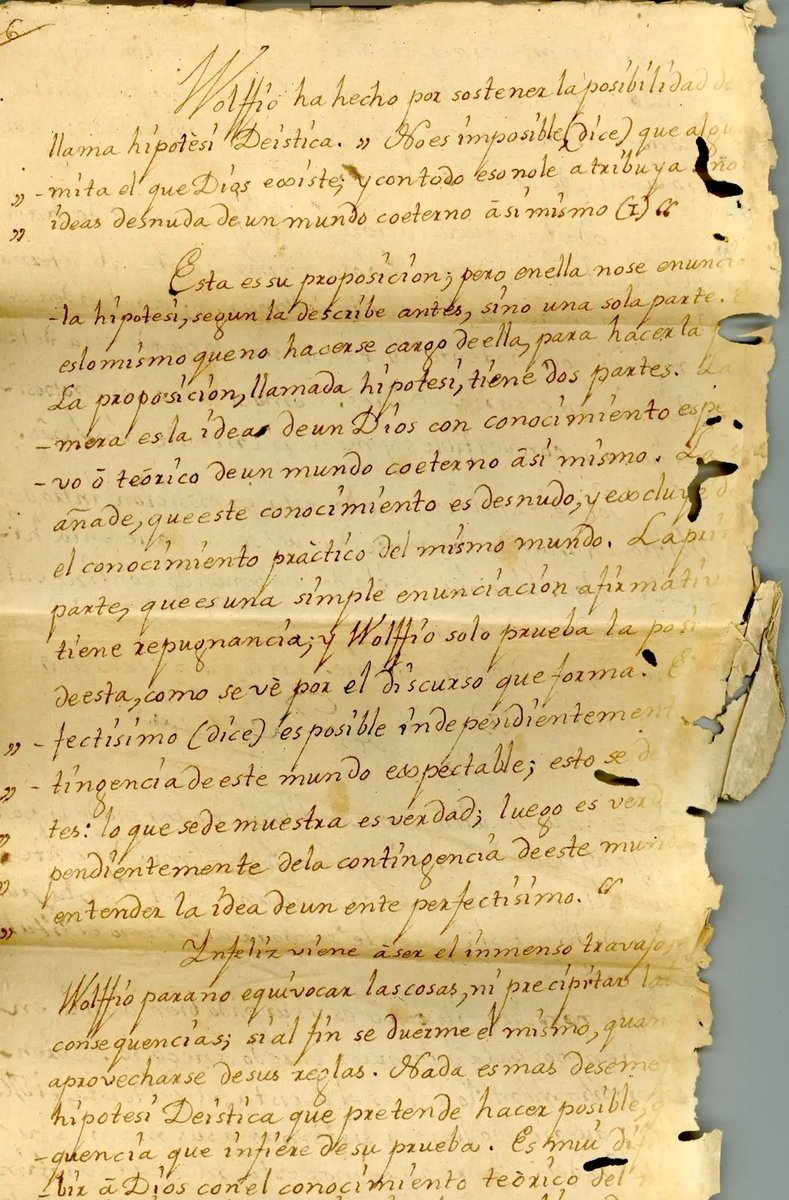 6
Wolffio ha hecho por sostener la posibilidad de
llama hipotèsi Deistica. „ No es imposible (dice) que algu
„ - mita el que Dios existe; y con todo eso no le atribuya
„ ideas desnuda de un mundo coeterno â si mismo (1) “
Esta es su proposicion; pero en ella no se enuncia
- la hipotesi, segun la describe antes, sino una sola parte.
es lo mismo que no hacerse cargo de ella, para hacer la
La proposicion, llamada hipotesi, tiene dos partes. La
- mera es la idea de un Dios con conocimiento espe
- vo ô teòrico de un mundo coeterno â si mismo. La
añade, que este conocimiento es desnudo, y excluye
el conocimiento pràctico del mismo mundo. La pri
parte, que es una simple enunciacion afirmativ
tiene repugnancia; y Wolffio solo prueba la posi
de esta, como se vè por el discurso que forma.
„ - fectisimo (dice) es posible independientement
„ - tingencia de este mundo expectable; esto se de
„ tes: lo que se demuestra es verdad; luego es verd
„ pendientemente de la contingencia de este mun
„ entender la idea de un ente perfectisimo. “
Ynfeliz viene â ser el inmenso travajo,
Wolffio para no equivocar las cosas, ni precipitar las
consequencias; si al fin se duerme el mismo, quan
aprovecharse de sus reglas. Nada es mas deseme
hipotesi Deistica que pretende hacer posible,
- quencia que infiere de su prueba. Es mui di
- bir â Dios con el conocimiento teòrico del